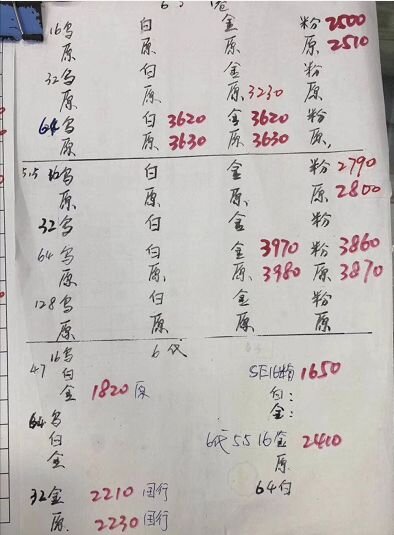 16乌 白 金 粉 2500
原 原 原 原 2510
32乌 白 金 粉
原 原 原 3230 原
64乌 白 3620 金 3620 粉
原 原 3630 原 3630 原
5.5 16乌 白 金 粉 2790
原 原 原 原 2800
32乌 白 金 粉
64乌 白 金 3970 粉 3860
原 原 原 3980 原 3870
128乌 白 金 粉
原 原 原 原
6代
47 16乌
白
金 1820 原
64乌
白
金
32金 2210 国行
原 2230 国行
SE16粉 1650
白:
金:
6代 55 16金 2410
原
64白